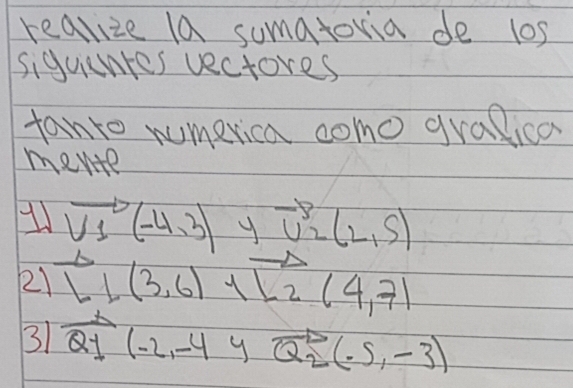 realize la sumatoria de los
siguientes vectores
tanto numerica como grafica
mente
1) V1 (-4,3) y V2 (2,5)
2) L1 (3,6) y L2 (4,7)
3) Q1 (-2,-4 y Q2 (-5,-3)